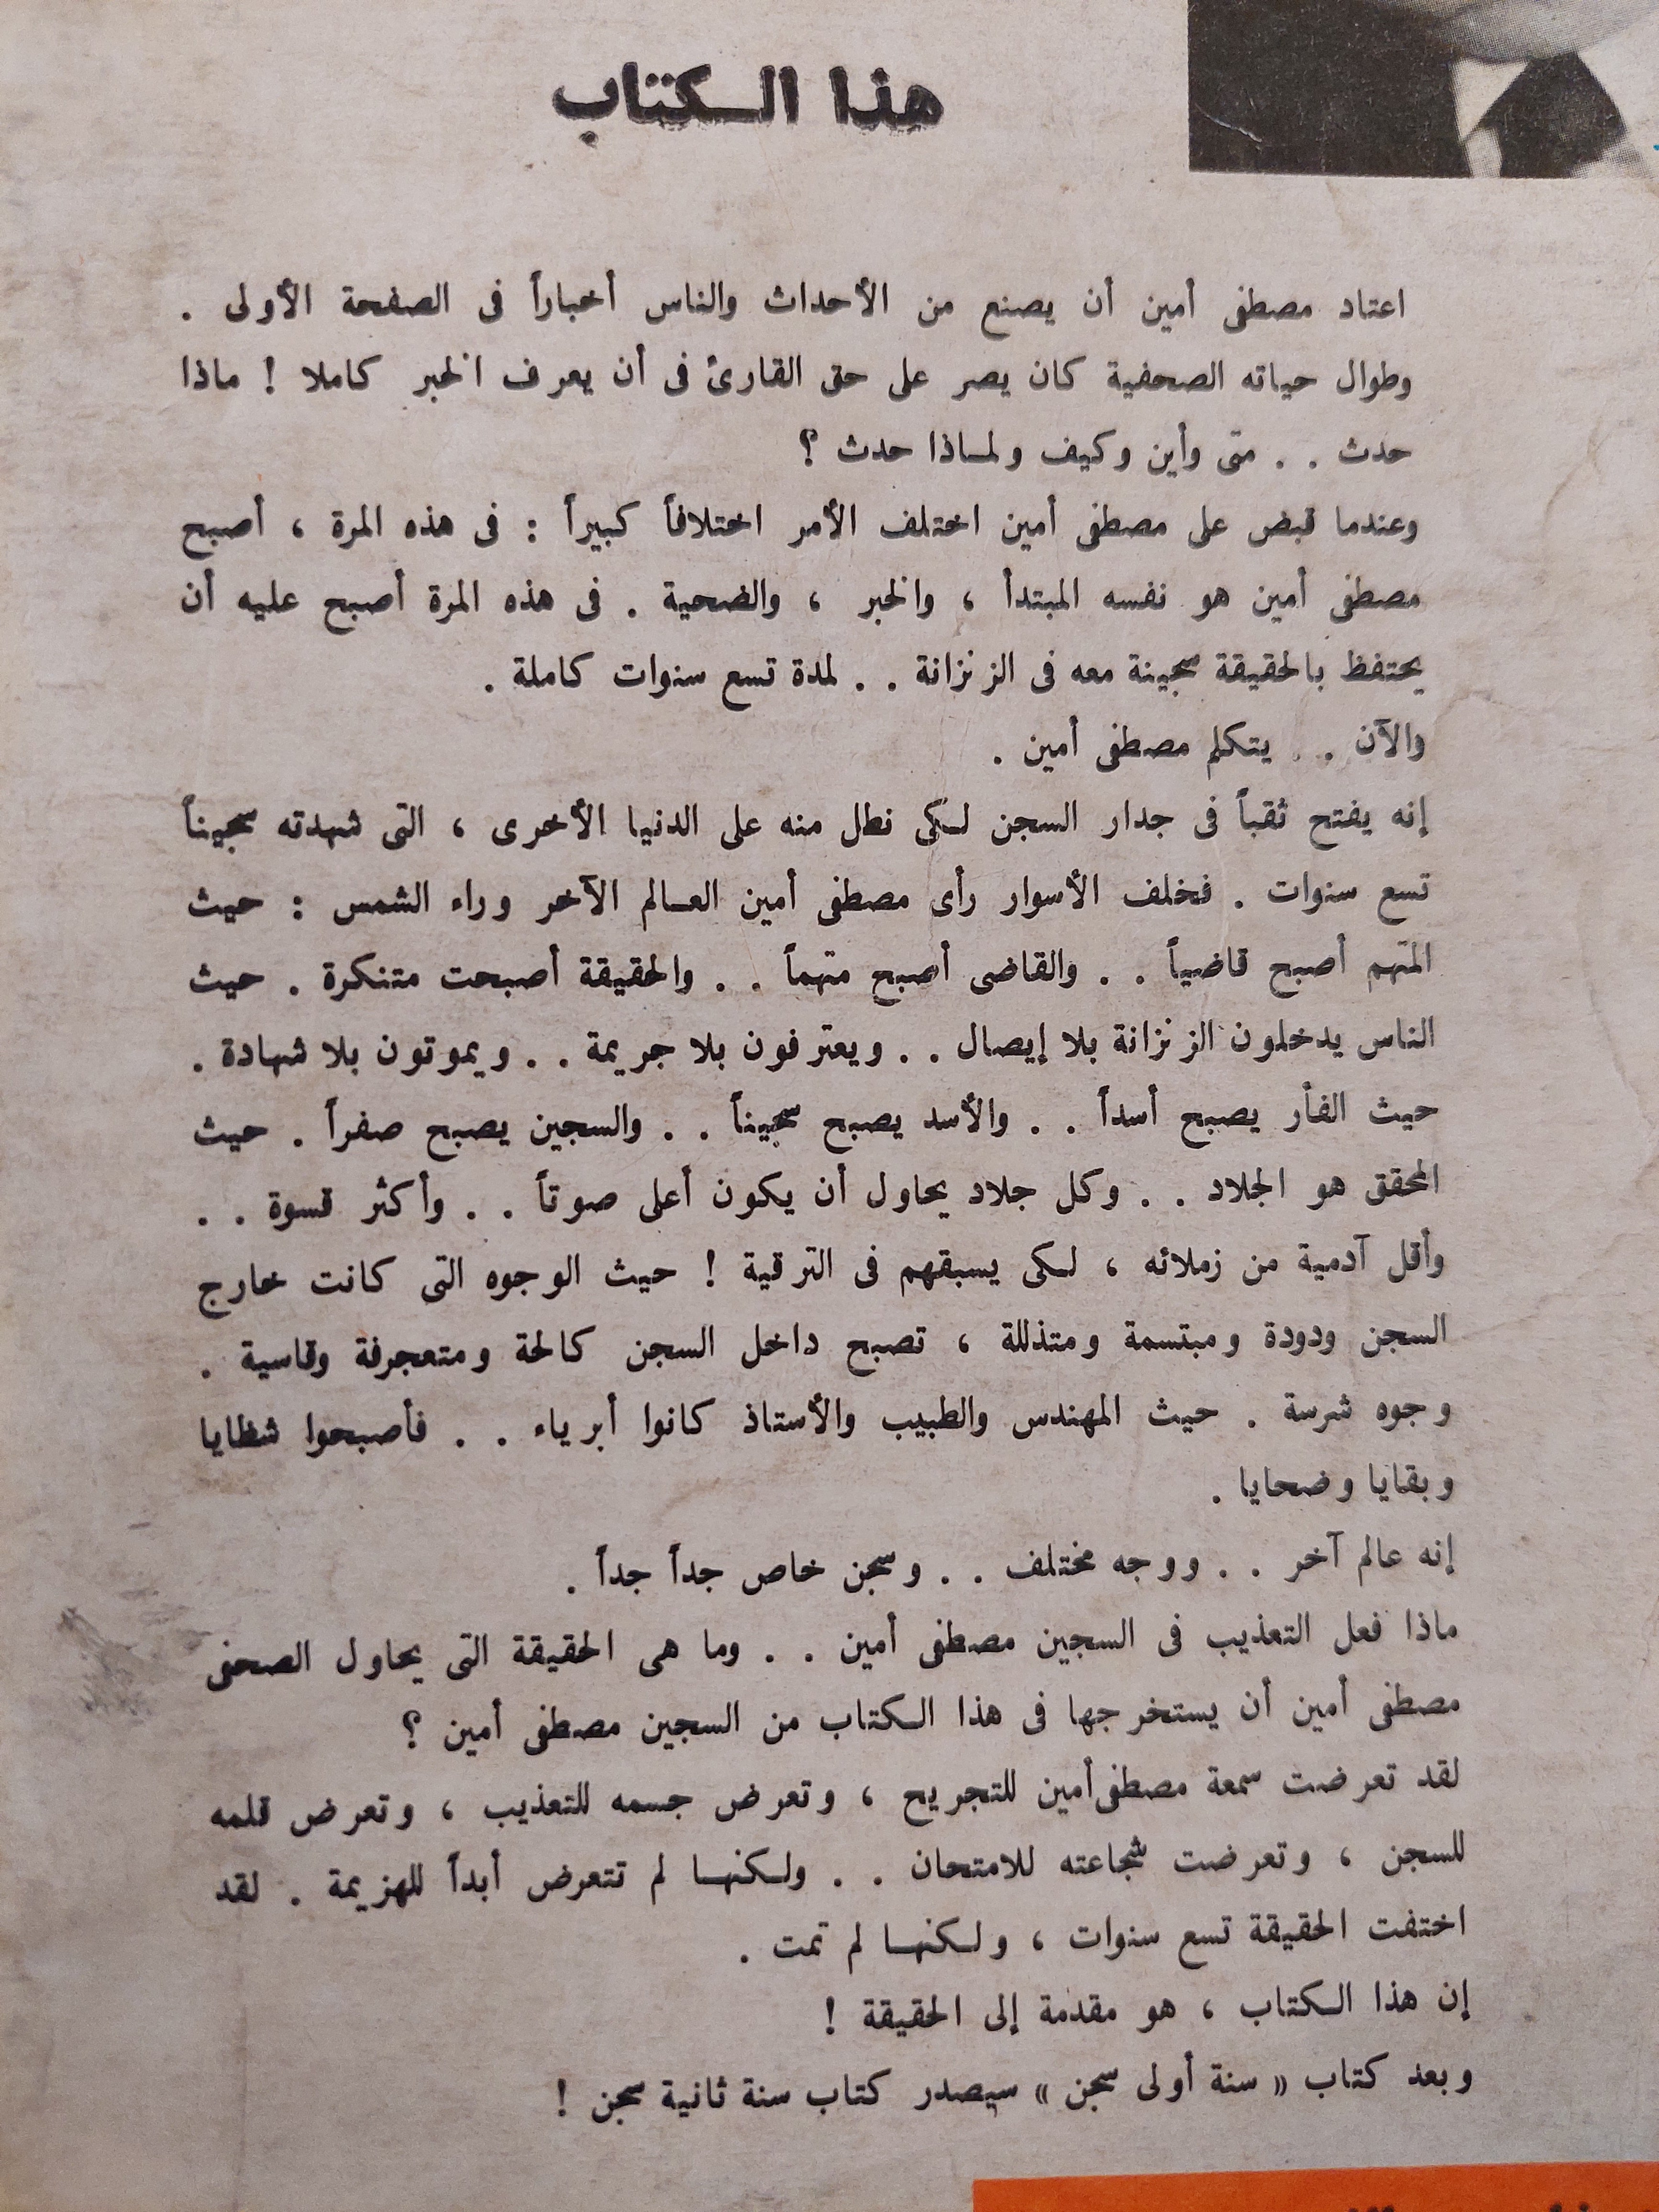 هذا الكتاب
اعتاد مصطفى أمين أن يصنع من الأحداث والناس أخباراً فى الصفحة الأولى .
وطوال حياته الصحفية كان يصر على حق القارئ فى أن يعرف الخبر كاملا ! ماذا
حدث . . متى وأين وكيف ولماذا حدث ؟
وعندما قبض على مصطفى أمين اختلف الأمر اختلافاً كبيراً : فى هذه المرة ، أصبح
مصطفى أمين هو نفسه المبتدأ ، والخبر ، والضحية . فى هذه المرة أصبح عليه أن
يحتفظ بالحقيقة سجينة معه فى الزنزانة . . لمدة تسع سنوات كاملة .
والآن . . يتكلم مصطفى أمين .
إنه يفتح ثقباً فى جدار السجن لكى نطل منه على الدنيا الأخرى ، التى شهدته سجيناً
تسع سنوات . فخلف الأسوار رأى مصطفى أمين العالم الآخر وراء الشمس : حيث
المتهم أصبح قاضياً . . والقاضى أصبح متهماً . . والحقيقة أصبحت متنكرة . حيث
الناس يدخلون الزنزانة بلا إيصال . . ويعترفون بلا جريمة . . ويموتون بلا شهادة .
حيث الفأر يصبح أسداً . . والأسد يصبح سجيناً . . والسجين يصبح صفراً . حيث
المحقق هو الجلاد . . وكل جلاد يحاول أن يكون أعلى صوتاً . . وأكثر قسوة . .
وأقل آدمية من زملائه ، لكى يسبقهم فى الترقية ! حيث الوجوه التى كانت خارج
السجن ودودة ومبتسمة ومتذللة ، تصبح داخل السجن كالحة ومتعجرفة وقاسية .
وجوه شرسة . حيث المهندس والطبيب والأستاذ كانوا أبرياء . . فأصبحوا شظايا
وبقايا وضحايا .
إنه عالم آخر . . ووجه مختلف . . وسجن خاص جداً جداً .
ماذا فعل التعذيب فى السجين مصطفى أمين . . وما هى الحقيقة التى يحاول الصحفى
مصطفى أمين أن يستخرجها فى هذا الكتاب من السجين مصطفى أمين ؟
لقد تعرضت سمعة مصطفى أمين للتجريح ، وتعرض جسمه للتعذيب ، وتعرض قلمه
للسجن ، وتعرضت شجاعته للامتحان . . ولكنها لم تتعرض أبداً للهزيمة . لقد
اختفت الحقيقة تسع سنوات ، ولكنها لم تمت .
إن هذا الكتاب ، هو مقدمة إلى الحقيقة !
وبعد كتاب « سنة أولى سجن » سيصدر كتاب سنة ثانية سجن !